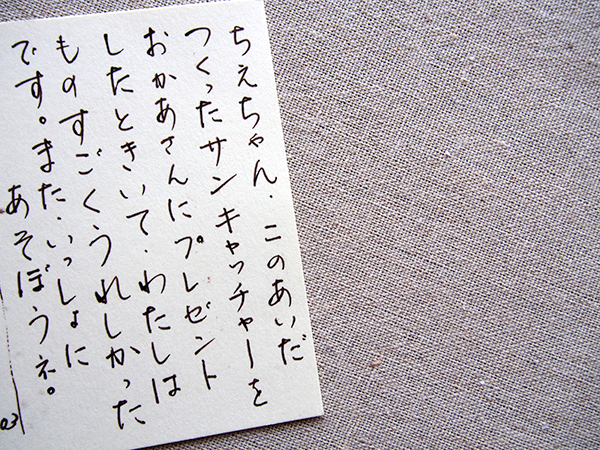 ちえちゃん.このあいだ
つくったサンキャッチャーを
おかあさんにプレゼント
したときいて.わたしは
ものすごくうれしかった
です。また.いっしょに
あそぼうネ。
03